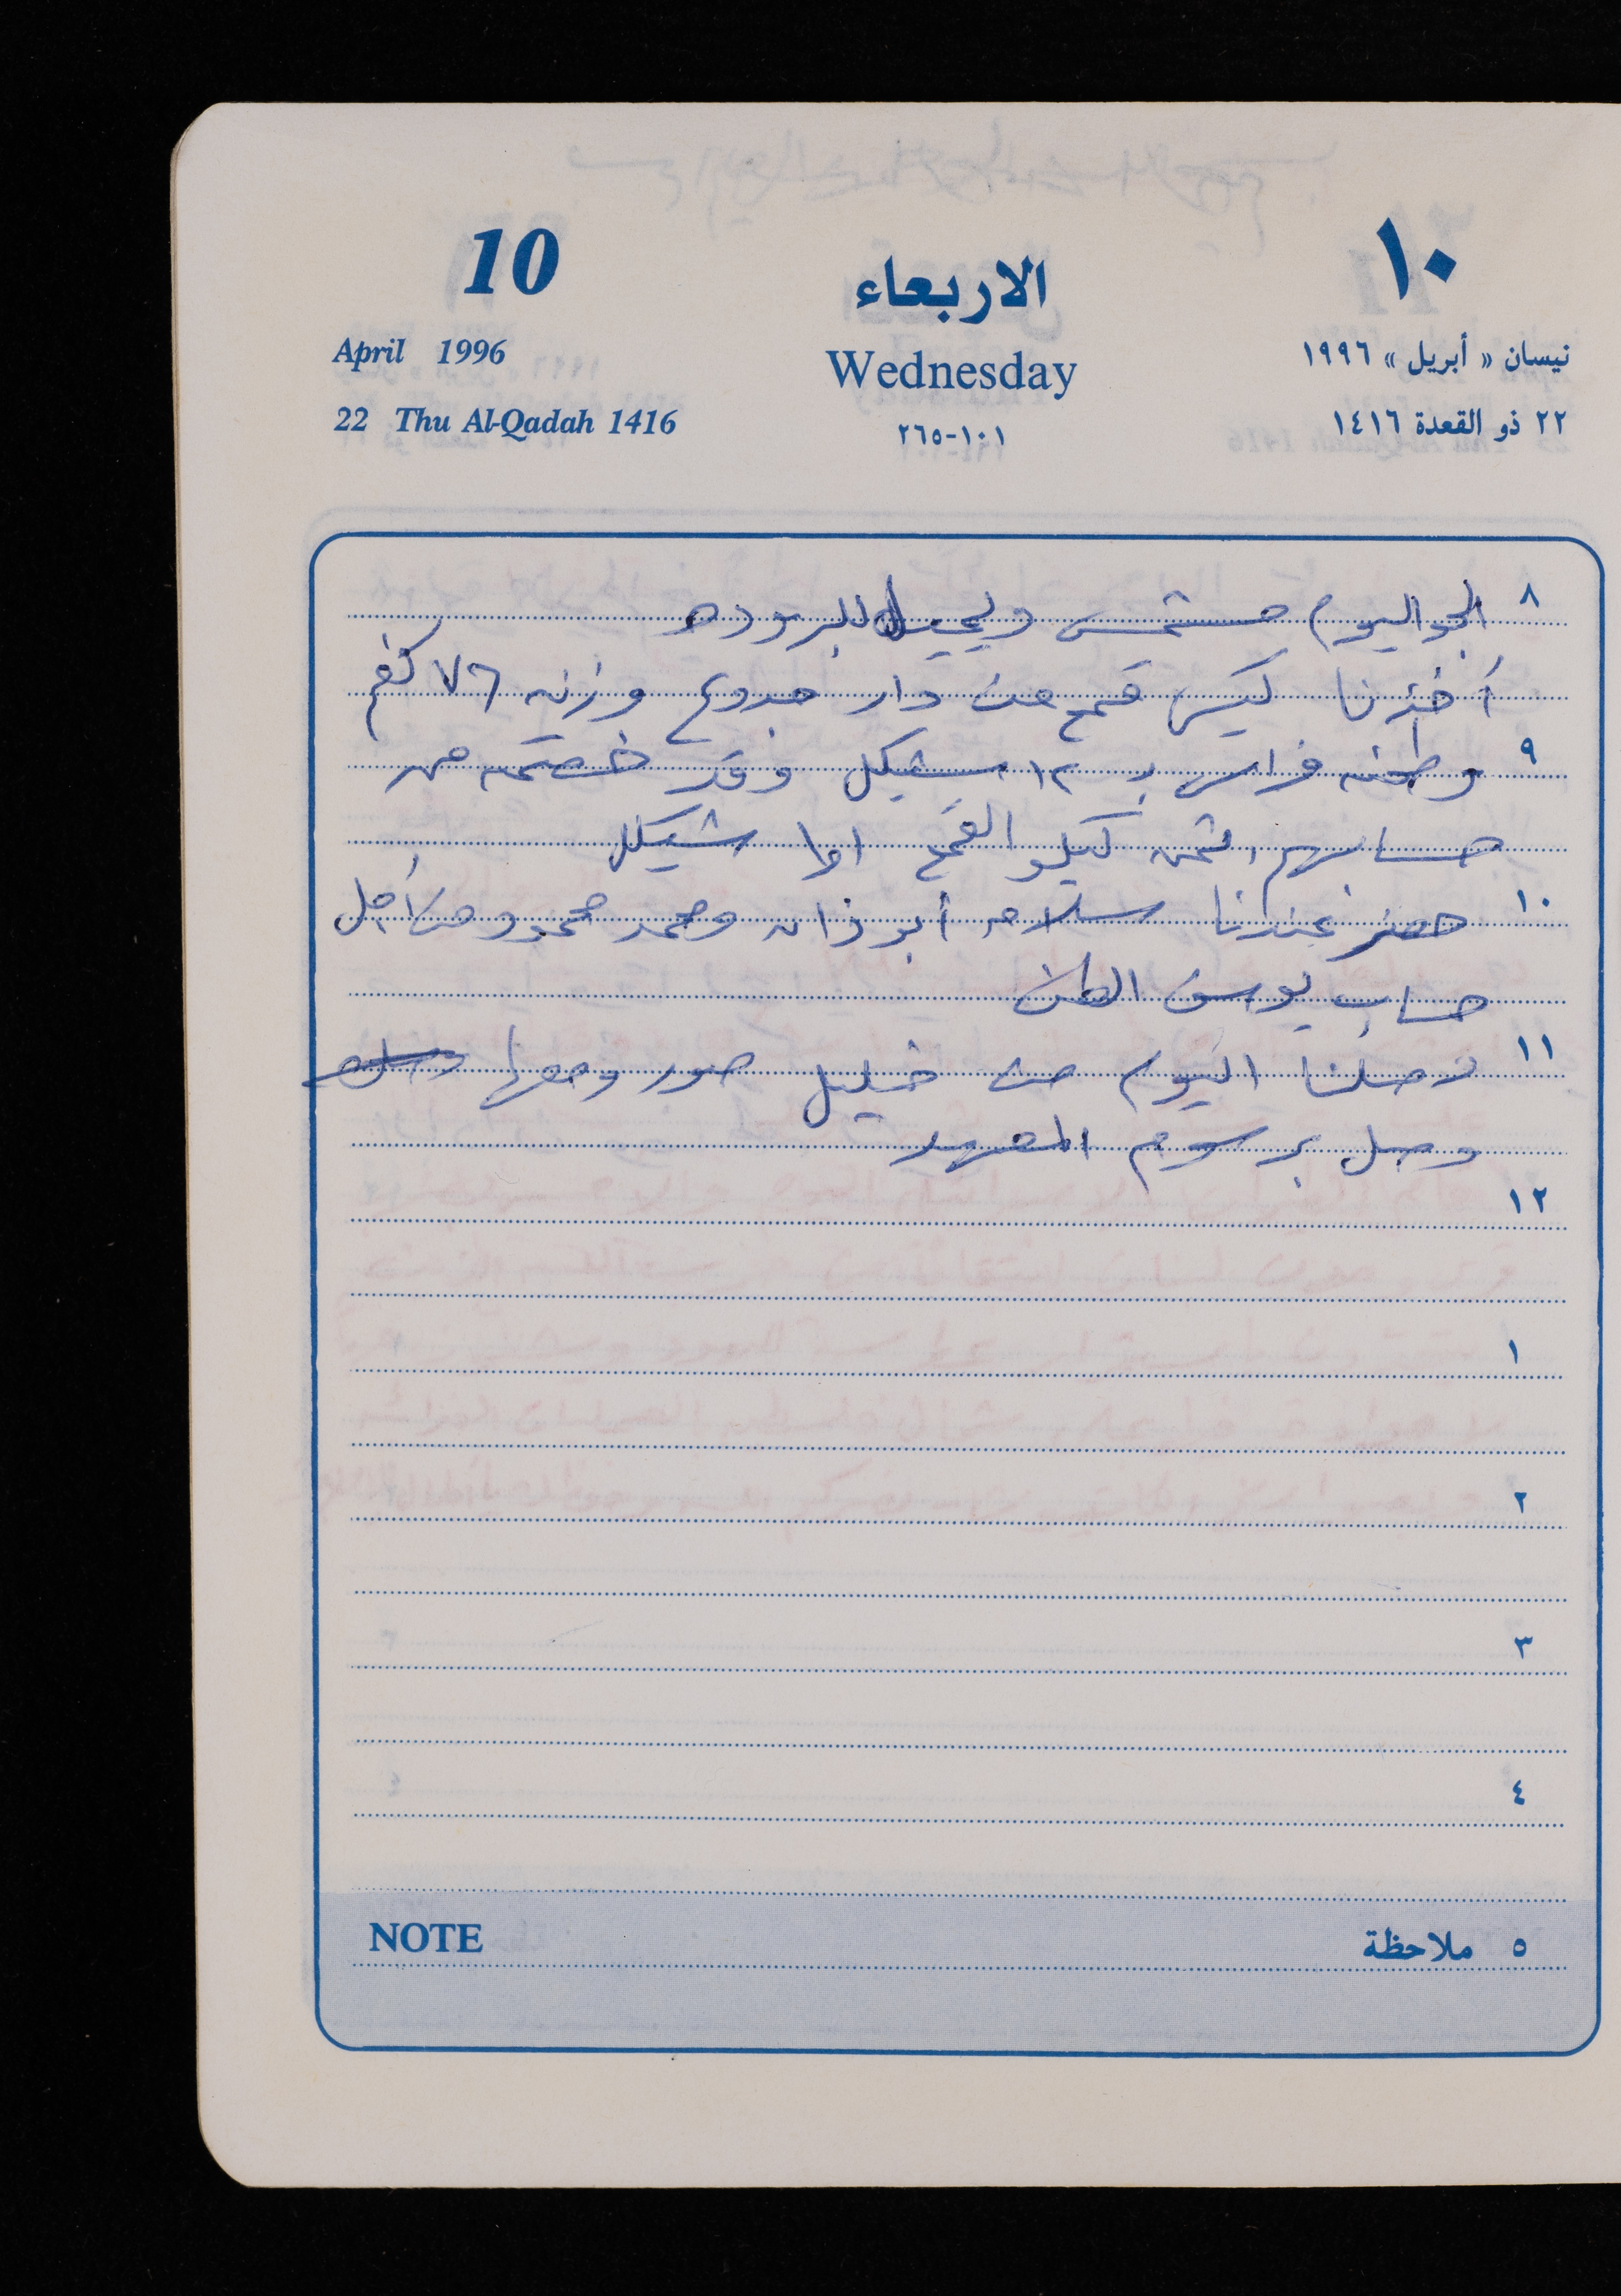 10 الاربعاء ١٠
April 1996 Wednesday نيسان « أبريل » ١٩٩٦
22 Thu Al-Qadah 1416 ١٠١-٢٦٥ ٢٢ ذو القعدة ١٤١٦
٨ الجو اليوم مشمس ويميل للبروده
أخذنا كيس قمح من دار جدوع وزنه ٧٦ كغم
٩ وطحنه فراس بـ ١٢ شيكل وقد خصمته من
حسابهم، ثمن كيلو القمح شيكل
١٠ حضر عندنا سلامه أبو زانه ومحمد محمود من أجل
حساب يوسف
١١ وصلنا اليوم من خليل صور ومعها
وصل برسوم المعهد
١٢
١
٢
٣
٤
NOTE ٥ ملاحظة